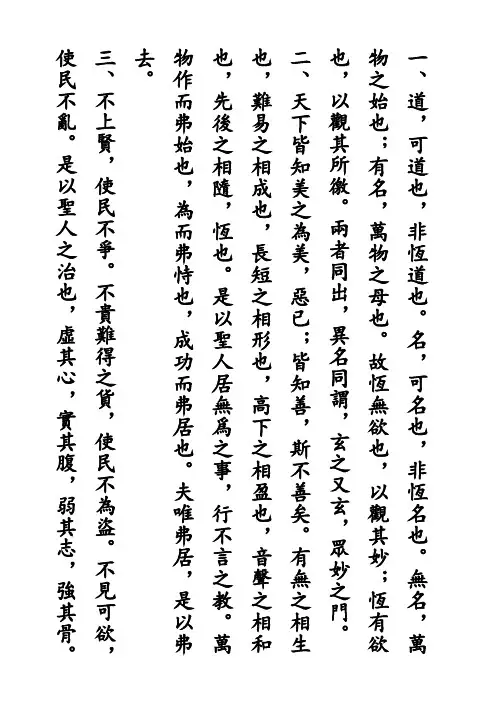 一、道，可道也，非恆道也。名，可名也，非恆名也。無名，萬
物之始也；有名，萬物之母也。故恆無欲也，以觀其妙；恆有欲
也，以觀其所徼。兩者同出，異名同謂，玄之又玄，眾妙之門。
二、天下皆知美之為美，惡已；皆知善，斯不善矣。有無之相生
也，難易之相成也，長短之相形也，高下之相盈也，音聲之相和
也，先後之相隨，恆也。是以聖人居無爲之事，行不言之教。萬
物作而弗始也，為而弗恃也，成功而弗居也。夫唯弗居，是以弗
去。
三、不上賢，使民不爭。不貴難得之貨，使民不為盜。不見可欲，
使民不亂。是以聖人之治也，虛其心，實其腹，弱其志，強其骨。